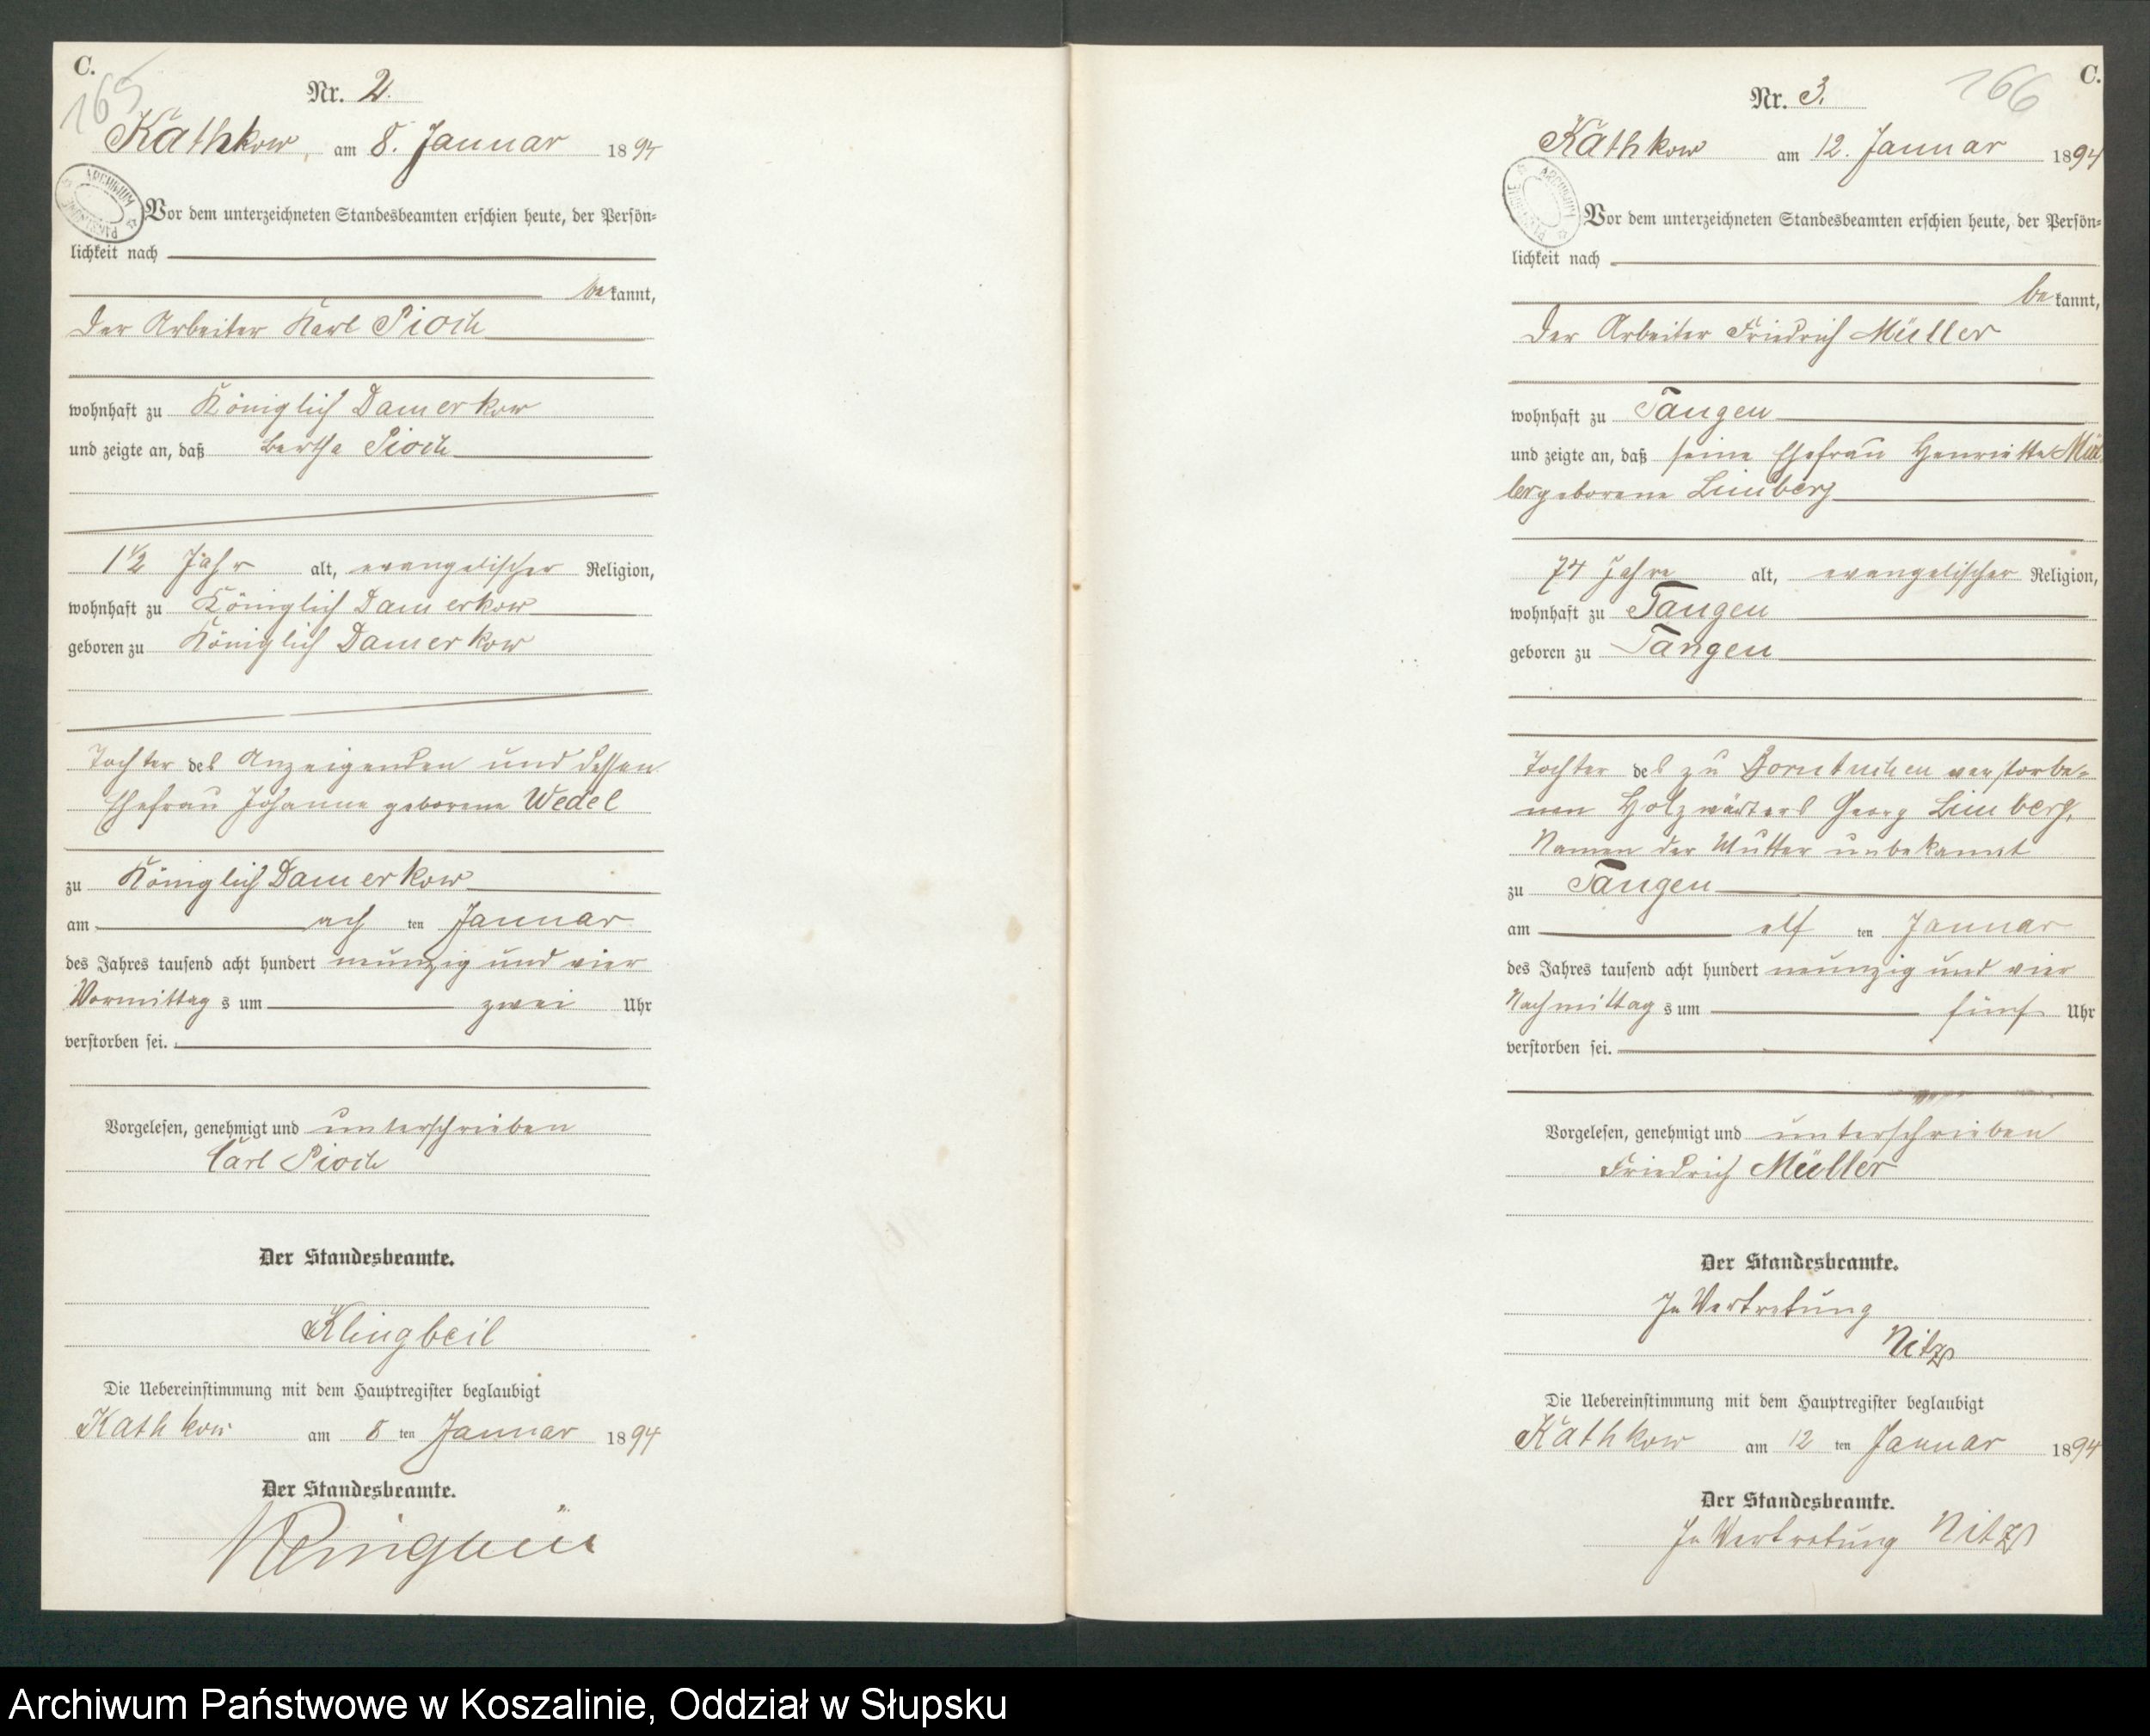 C.
165
Nr. 2.
Kathkow, am 8. Januar 1894
ARCHIWUM
Vor dem unterzeichneten Standesbeamten erschien heute, der Persön=
lichkeit nach
bekannt,
der Arbeiter Karl Pioch
wohnhaft zu Königlich Damerkow
und zeigte an, daß Bertha Pioch
1½ Jahr alt, evangelischer Religion,
wohnhaft zu Königlich Damerkow
geboren zu Königlich Damerkow
Tochter des Anzeigenden und dessen
Ehefrau Johanne geborene Wedel
zu Königlich Damerkow
am ach ten Januar
des Jahres tausend acht hundert neunzig und vier
Vormittag s um zwei Uhr
verstorben sei.
Vorgelesen, genehmigt und unterschrieben
Carl Pioch
Der Standesbeamte.
Klingbeil
Die Uebereinstimmung mit dem Hauptregister beglaubigt
Kathkow am 8 ten Januar 1894
Der Standesbeamte.
Klingbeil
C.
166
Nr. 3.
Kathkow am 12. Januar 1894
ARCHIWUM
Vor dem unterzeichneten Standesbeamten erschien heute, der Persön=
lichkeit nach
bekannt,
der Arbeiter Friedrich Müller
wohnhaft zu Tangen
und zeigte an, daß seine Ehefrau Henriette Mül
ler geborene Limberg
74 Jahre alt, evangelischer Religion,
wohnhaft zu Tangen
geboren zu Tangen
Tochter des zu Borntuchen verstorbe=
nen Holzwärters Georg Limberg,
Namen der Mutter unbekannt
zu Tangen
am elf ten Januar
des Jahres tausend acht hundert neunzig und vier
Nachmittag s um fünf Uhr
verstorben sei.
Vorgelesen, genehmigt und unterschrieben
Friedrich Müller
Der Standesbeamte.
In Vertretung
Nitz
Die Uebereinstimmung mit dem Hauptregister beglaubigt
Kathkow am 12 ten Januar 1894
Der Standesbeamte.
In Vertretung Nitz
Archiwum Państwowe w Koszalinie, Oddział w Słupsku